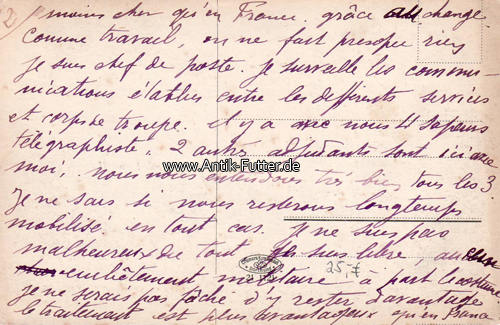 2) moins cher qu'en France. grâce au change.
Comme travail, on ne fait presque rien
je suis chef de poste. je surveille les commu-
nications établies entre les différents services
et corps de troupe. il y a avec nous 4 sapeurs
télégraphiste. 2 autres adjudants sont ici avec
moi, nous nous entendons très bien tous les 3
www.Antik-Futter.de
je ne sais si nous resterons longtemps
mobilisé en tout cas. je ne suis pas
malheureux du tout suis libre
militaire à part le costume
25-7
je ne serais pas fâché d'y rester davantage
le traitement est plus avantageux qu'en France